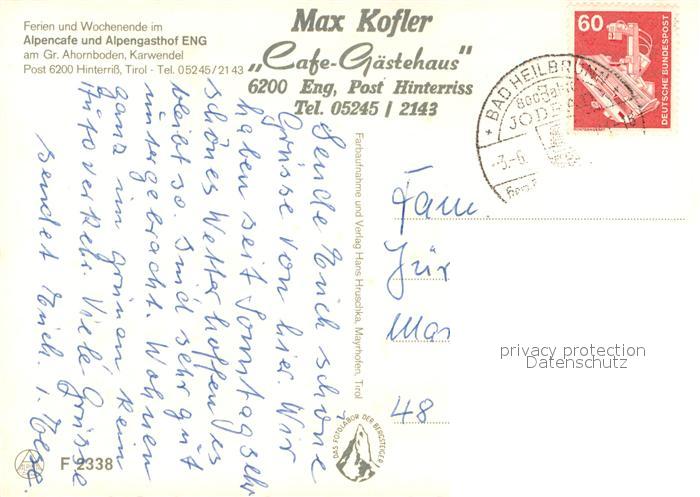 Ferien und Wochenende im
Alpencafe und Alpengasthof ENG
am Gr. Ahornboden, Karwendel
Post 6200 Hinterriß, Tirol - Tel. 05245/21 43
Max Kofler
„Cafe-Gästehaus"
6200 Eng, Post Hinterriss
Tel. 05245 / 2143
60
DEUTSCHE BUNDESPOST
+ BAD HEILBRUNN
800 Jahre
JOD
-3.-6.
Sende Euch schöne
Grüsse von hier. Wir
haben seit Sonntag sehr
schönes Wetter hoffen es
bleibt so. Sind sehr gut
untergebracht. Wohnen
ganz im grünen kein
Autoverkehr. Viele Grüsse
sendet Euch
Farbaufnahme und Verlag Hans Hruschka, Mayrhofen, Tirol
Fam
Jür
Mar
48
privacy protection
Datenschutz
DAS FOTOLABOR DER BERGSTEIGER
F 2338